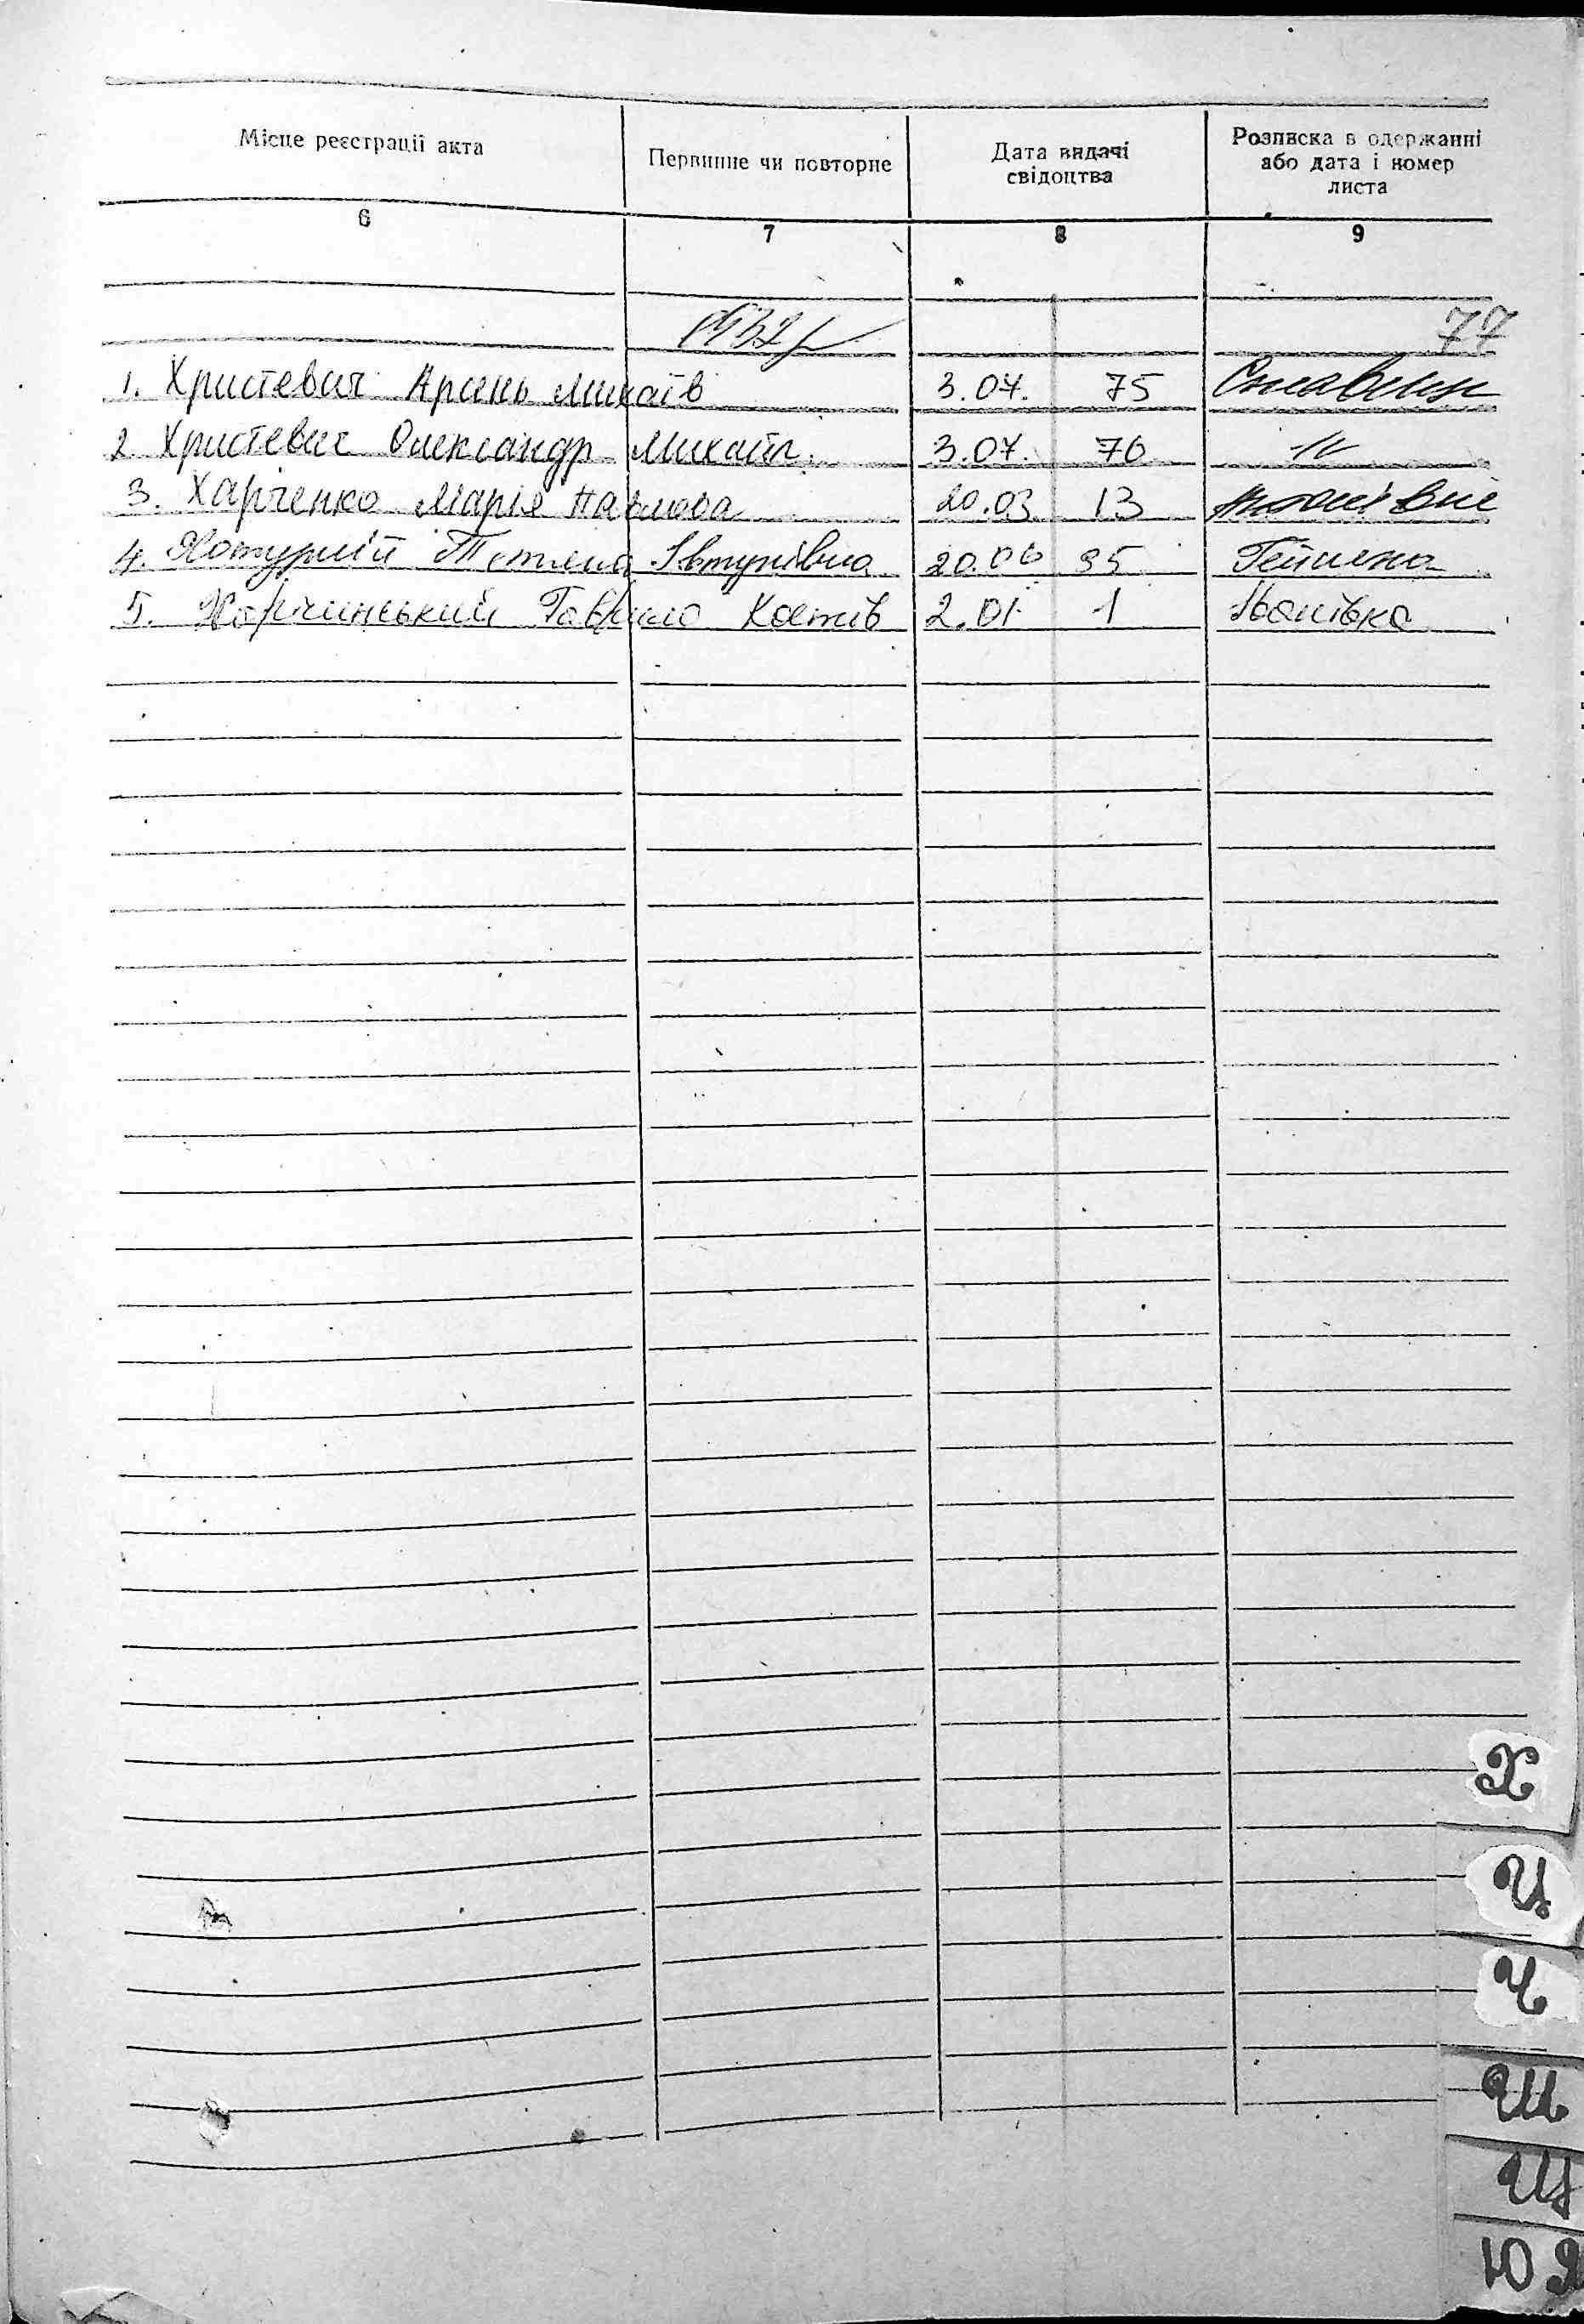 Місце реєстрації акта
Первинне чи повторне
Дата видачі
свідоцтва
Розписка в одержанні
або дата і номер
листа
6 7 8 9
1932р 77
1. Христевич Арсень Михаїв 3.07. 75 Славлин
2. Христевич Олександр Михайл. 3.07. 76 //
3. Харченко Марія Павлова 20.03. 13
4. Тетяна 20.06 95
5. Харчинський Гаврило Костів 2.01. 1 Іванівка
Х
Ц
Ч
Ш
Щ
Ю Я